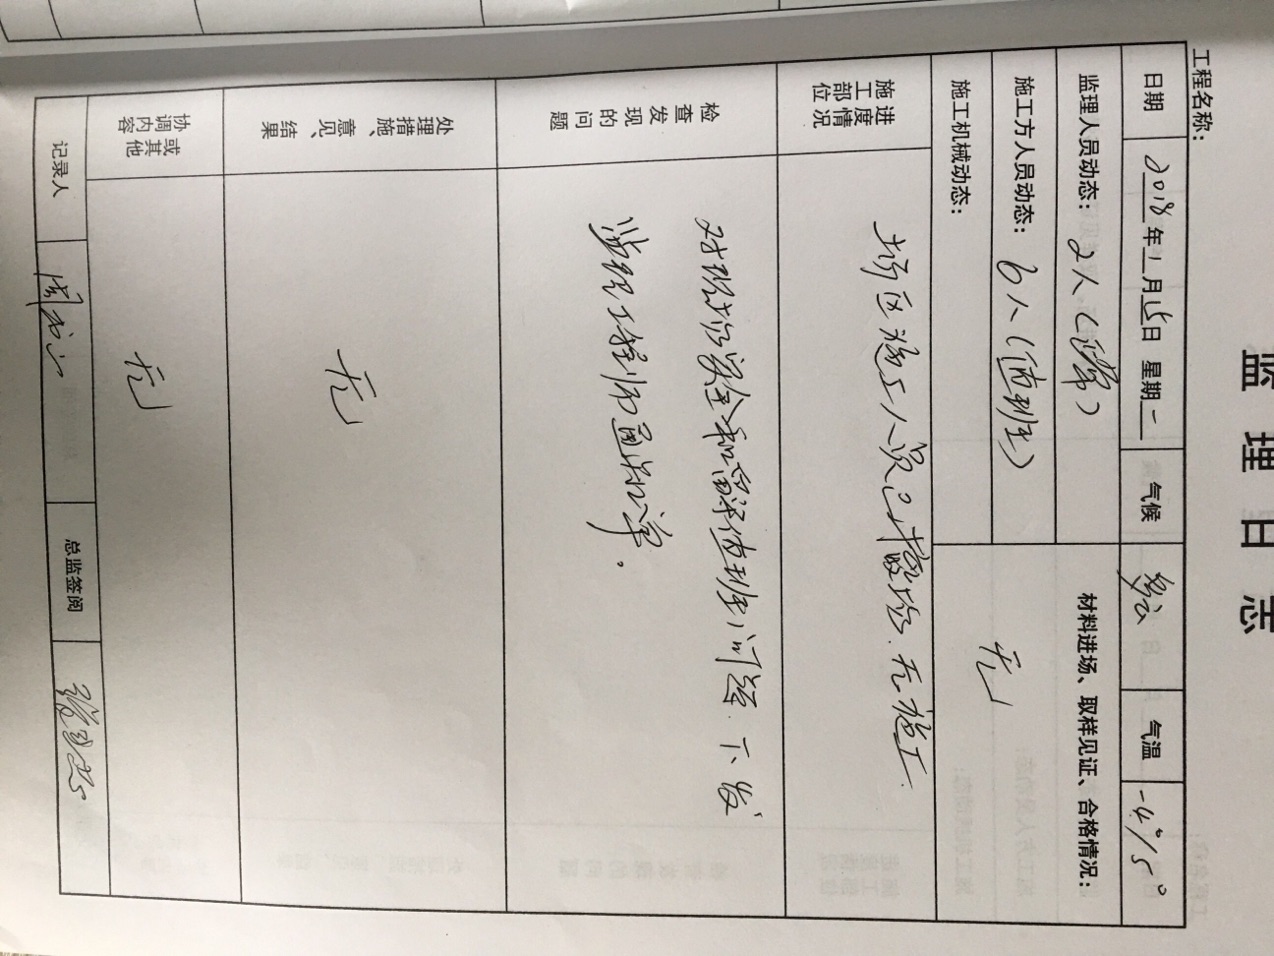 监理日志
工程名称：
日期 2018年1月15日 星期一 气候 多云 气温 -4°/5°
监理人员动态： 2人（正常）
材料进场、取样见证、合格情况：
施工方人员动态： 6人（值班）
无
施工机械动态：
施工进度部位情况
场区施工人员已撤场.无施工
检查发现的问题
对现场安全和留守值班问题.下发
监理工程师通知单.
处理措施、意见、结果
无
协调或其他内容
无
记录人
总监签阅